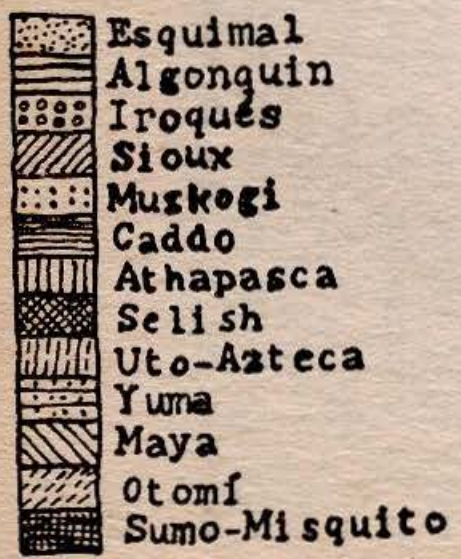 Esquimal
Algonquin
Iroqués
Sioux
Muskogi
Caddo
Athapasca
Selish
Uto-Azteca
Yuma
Maya
Otomí
Sumo-Misquito